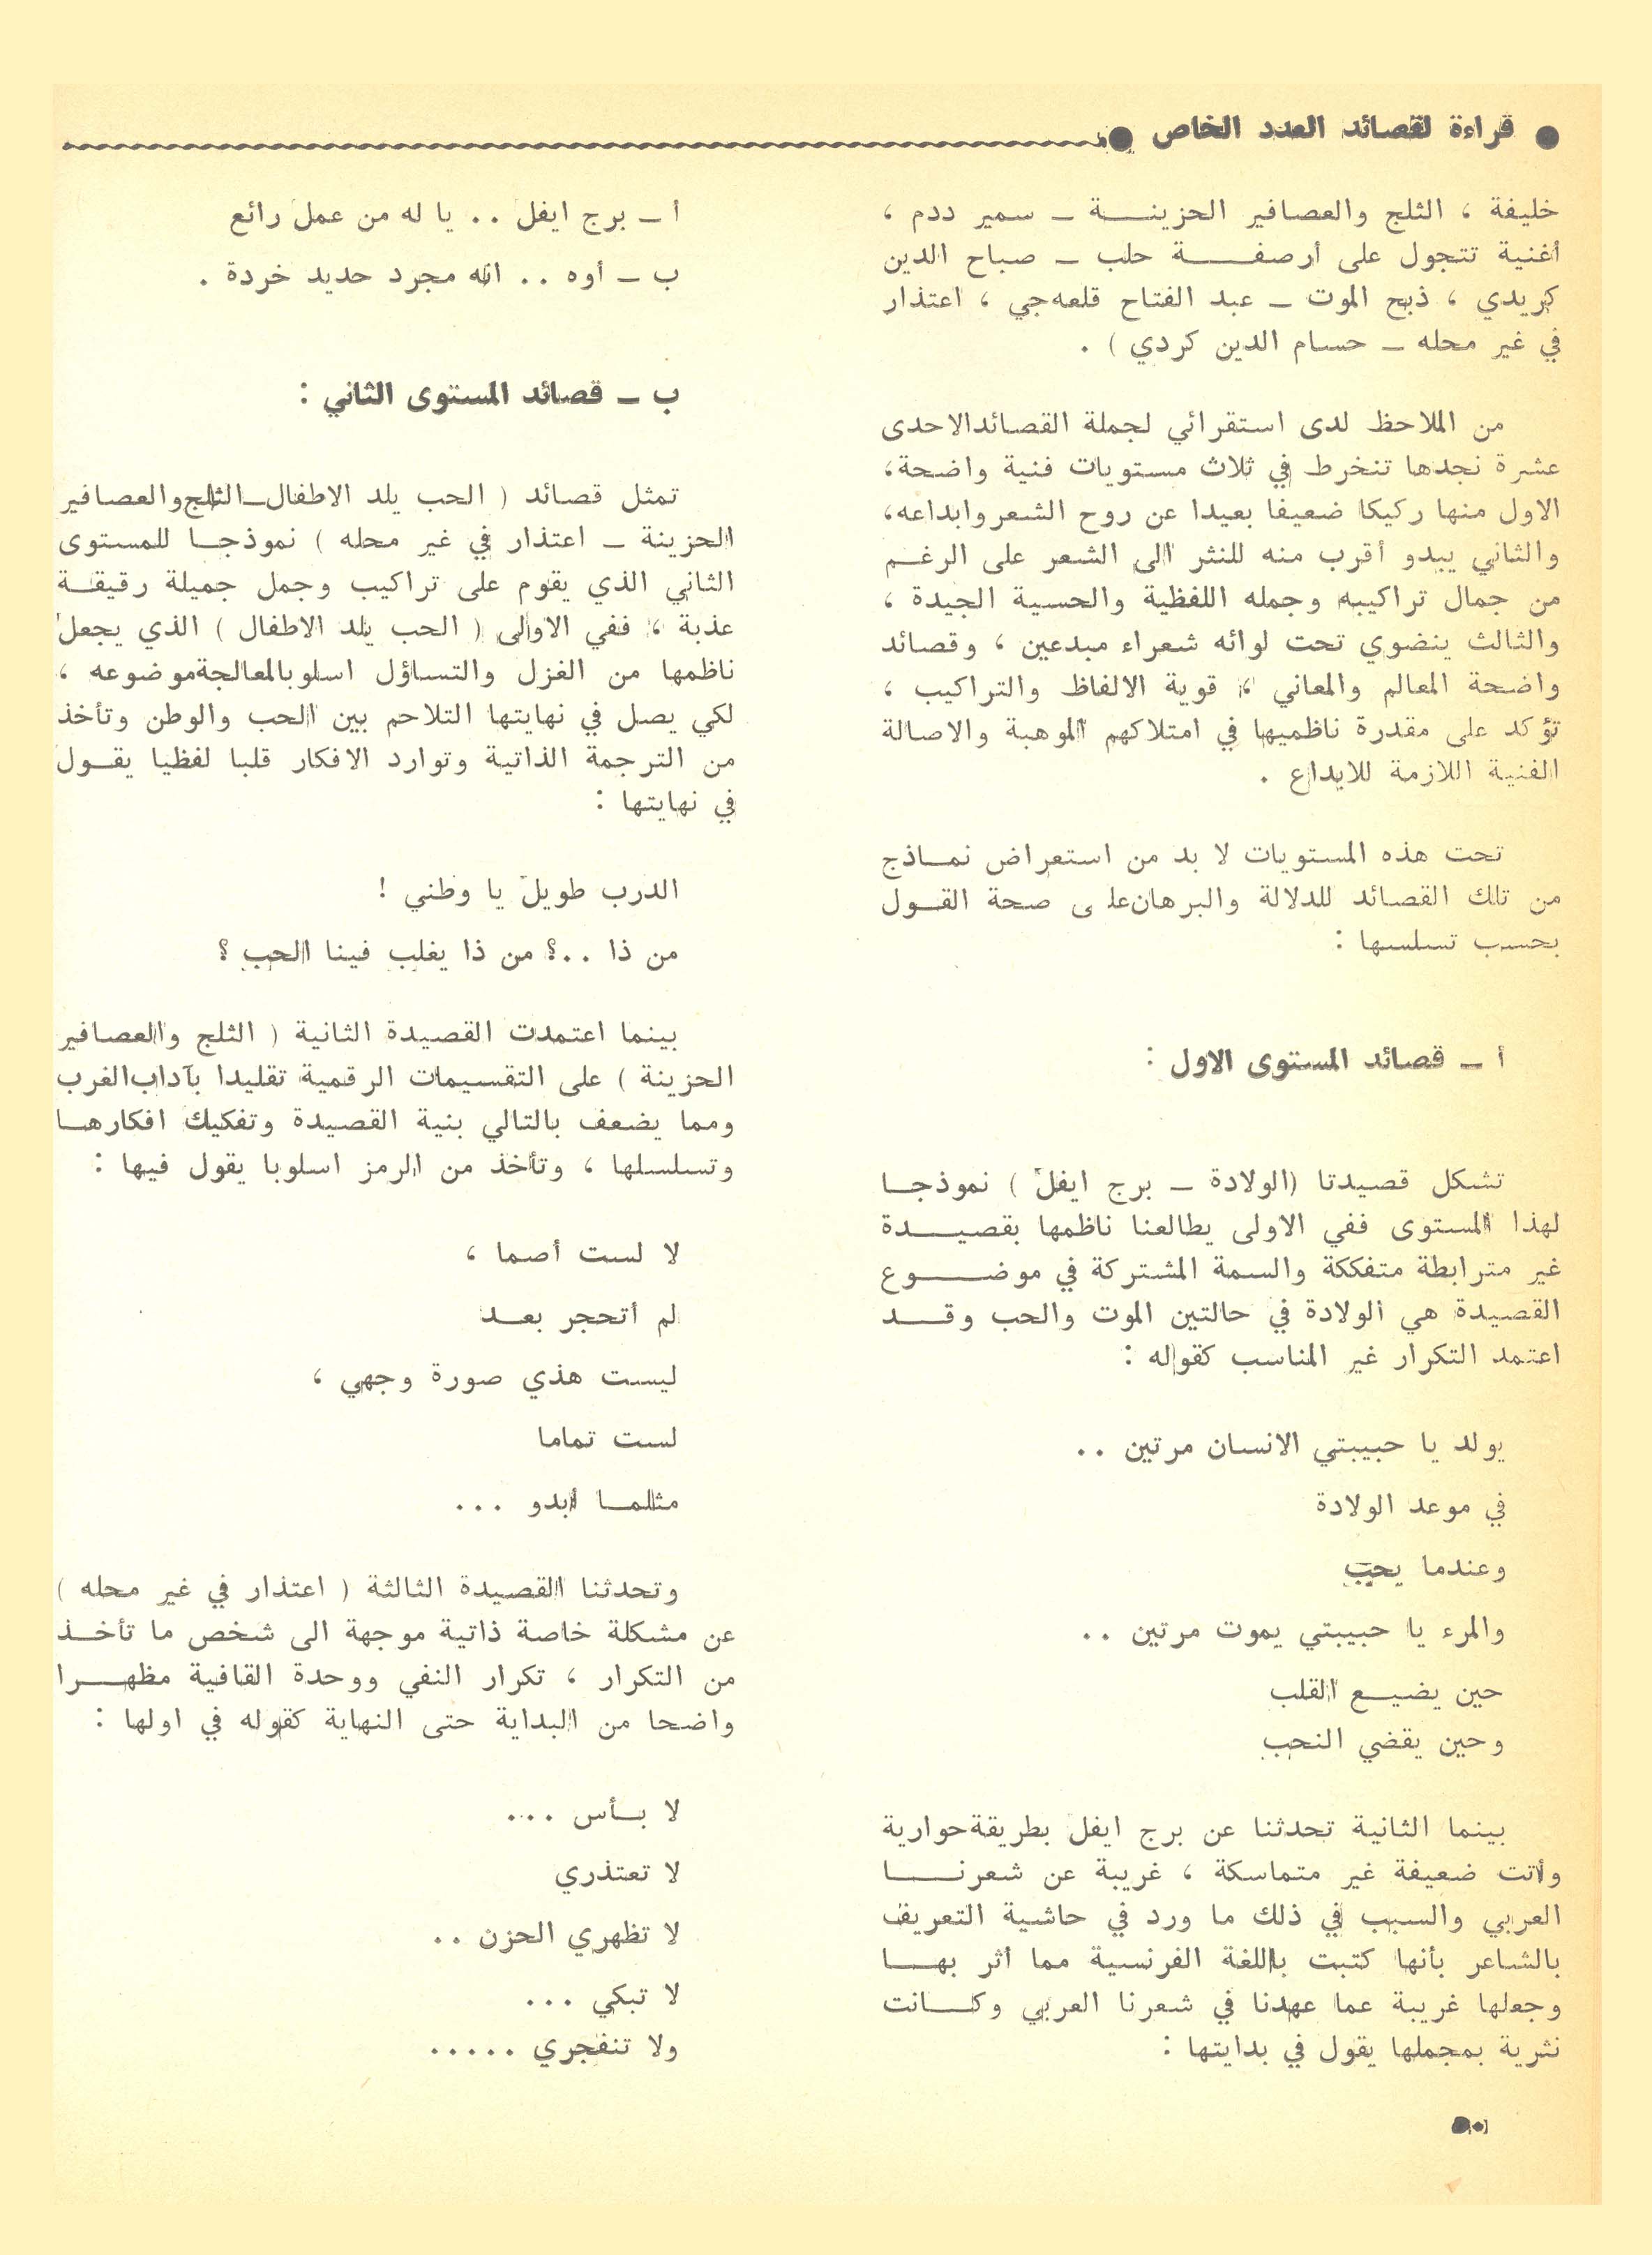 ● قراءة لقصائد العدد الخاص ●
خليفة ، الثلج والعصافير الحزينـــة ـ سمير ددم ،
أغنية تتجول على أرصفـــة حلب ـ صباح الدين
كريدي ، ذبح الموت ـ عبد الفتاح قلعه‌جي ، اعتذار
في غير محله ـ حسام الدين كردي ) .
من الملاحظ لدى استقرائي لجملة القصائدالاحدى
عشرة نجدها تنخرط في ثلاث مستويات فنية واضحة،
الاول منها ركيكا ضعيفا بعيدا عن روح الشعر وابداعه،
والثاني يبدو أقرب منه للنثر الى الشعر على الرغـم
من جمال تراكيبه وجمله اللفظية والحسية الجيدة ،
والثالث ينضوي تحت لوائه شعراء مبدعين ، وقصائد
واضحة المعالم والمعاني ، قوية الالفاظ والتراكيب ،
تؤكد على مقدرة ناظميها في امتلاكهم الموهبة والاصالة
الفنية اللازمة للابداع .
تحت هذه المستويات لا بد من استعراض نمـاذج
من تلك القصائد للدلالة والبرهان‌على صحة القـول
بحسب تسلسها :
أ ـ قصائد المستوى الاول :
تشكل قصيدتا (الولادة ـ برج ايفل ) نموذجـا
لهذا المستوى ففي الاولى يطالعنا ناظمها بقصيـدة
غير مترابطة متفككة والسمة المشتركة في موضـــوع
القصيدة هي الولادة في حالتين الموت والحب وقــد
اعتمد التكرار غير المناسب كقوله :
يولد يا حبيبتي الانسان مرتين ..
في موعد الولادة
وعندما يحب
والمرء يا حبيبتي يموت مرتين ..
حين يضيـع القلب
وحين يقضي النحب
بينما الثانية تحدثنا عن برج ايفل بطريقة‌حوارية
وأتت ضعيفة غير متماسكة ، غريبة عن شعرنـــا
العربي والسبب في ذلك ما ورد في حاشية التعريف
بالشاعر بأنها كتبت باللغة الفرنسية مما أثر بهــا
وجعلها غريبة عما عهدنا في شعرنا العربي وكــانت
نثرية بمجملها يقول في بدايتها :
أ ـ برج ايفل .. يا له من عمل رائع
ب ـ أوه .. انه مجرد حديد خردة .
ب ـ قصائد المستوى الثاني :
تمثل قصائد ( الحب يلد الاطفال ـ الثلج‌والعصافير
الحزينة ـ اعتذار في غير محله ) نموذجـا للمستوى
الثاني الذي يقوم على تراكيب وجمل جميلة رقيقـة
عذبة ، ففي الاولى ( الحب يلد الاطفال ) الذي يجعل
ناظمها من الغزل والتساؤل اسلوبالمعالجة‌موضوعه ،
لكي يصل في نهايتها التلاحم بين الحب والوطن وتأخذ
من الترجمة الذاتية وتوارد الافكار قلبا لفظيا يقـول
في نهايتها :
الدرب طويل يا وطني !
من ذا ..؟ من ذا يغلب فينا الحب ؟
بينما اعتمدت القصيدة الثانية ( الثلج والعصافير
الحزينة ) على التقسيمات الرقمية تقليدا بآداب‌الغرب
ومما يضعف بالتالي بنية القصيدة وتفكيك افكارهـا
وتسلسلها ، وتأخذ من الرمز اسلوبا يقول فيها :
لا لست أصما ،
لم أتحجر بعـد
ليست هذي صورة وجهي ،
لست تماما
مثلمـا أبدو ...
وتحدثنا القصيدة الثالثة ( اعتذار في غير محله )
عن مشكلة خاصة ذاتية موجهة الى شخص ما تأخـذ
من التكرار ، تكرار النفي ووحدة القافية مظهـــرا
واضحا من البداية حتى النهاية كقوله في اولها :
لا بـأس ...
لا تعتذري
لا تظهري الحزن ..
لا تبكي ...
ولا تنفجري .....